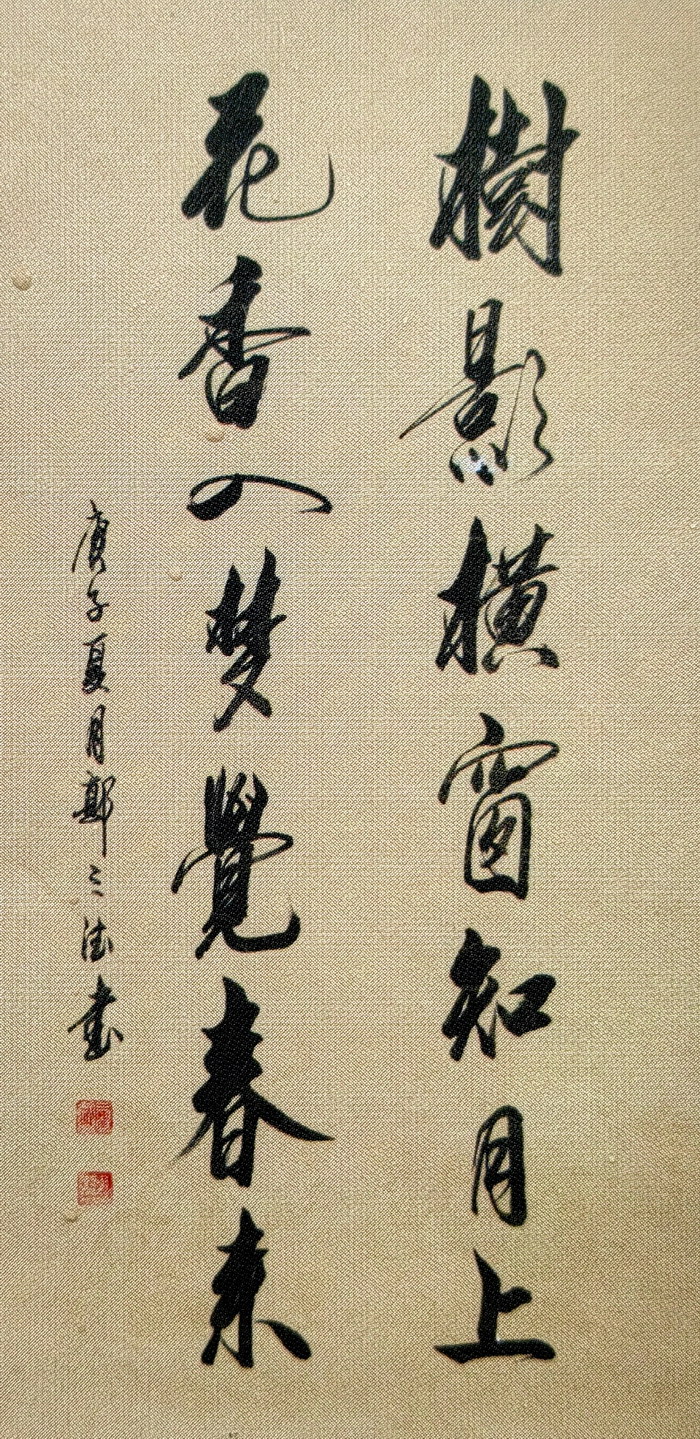 樹影横窗知月上
花香入梦覺春来
庚子夏月鄭三法書